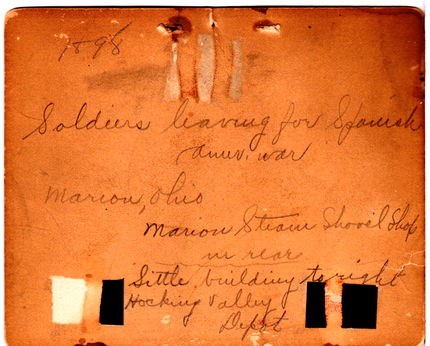 1898
Soldiers leaving for Spanish
Amer. war
Marion, Ohio
Marion Steam Shovel Shop
in rear
Little building to right
Hocking Valley
Depot